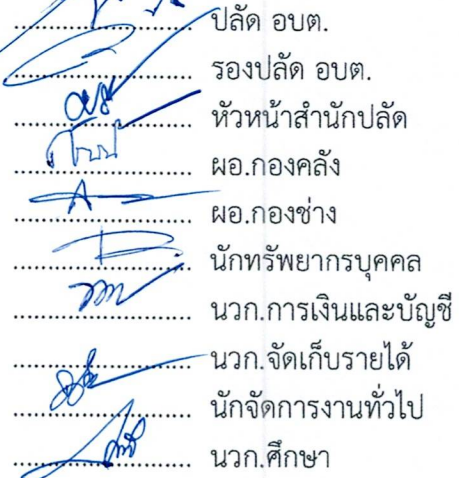 ........................ ปลัด อบต.
........................ รองปลัด อบต.
........................ หัวหน้าสำนักปลัด
........................ ผอ.กองคลัง
........................ ผอ.กองช่าง
........................ นักทรัพยากรบุคคล
........................ นวก.การเงินและบัญชี
........................ นวก.จัดเก็บรายได้
........................ นักจัดการงานทั่วไป
........................ นวก.ศึกษา